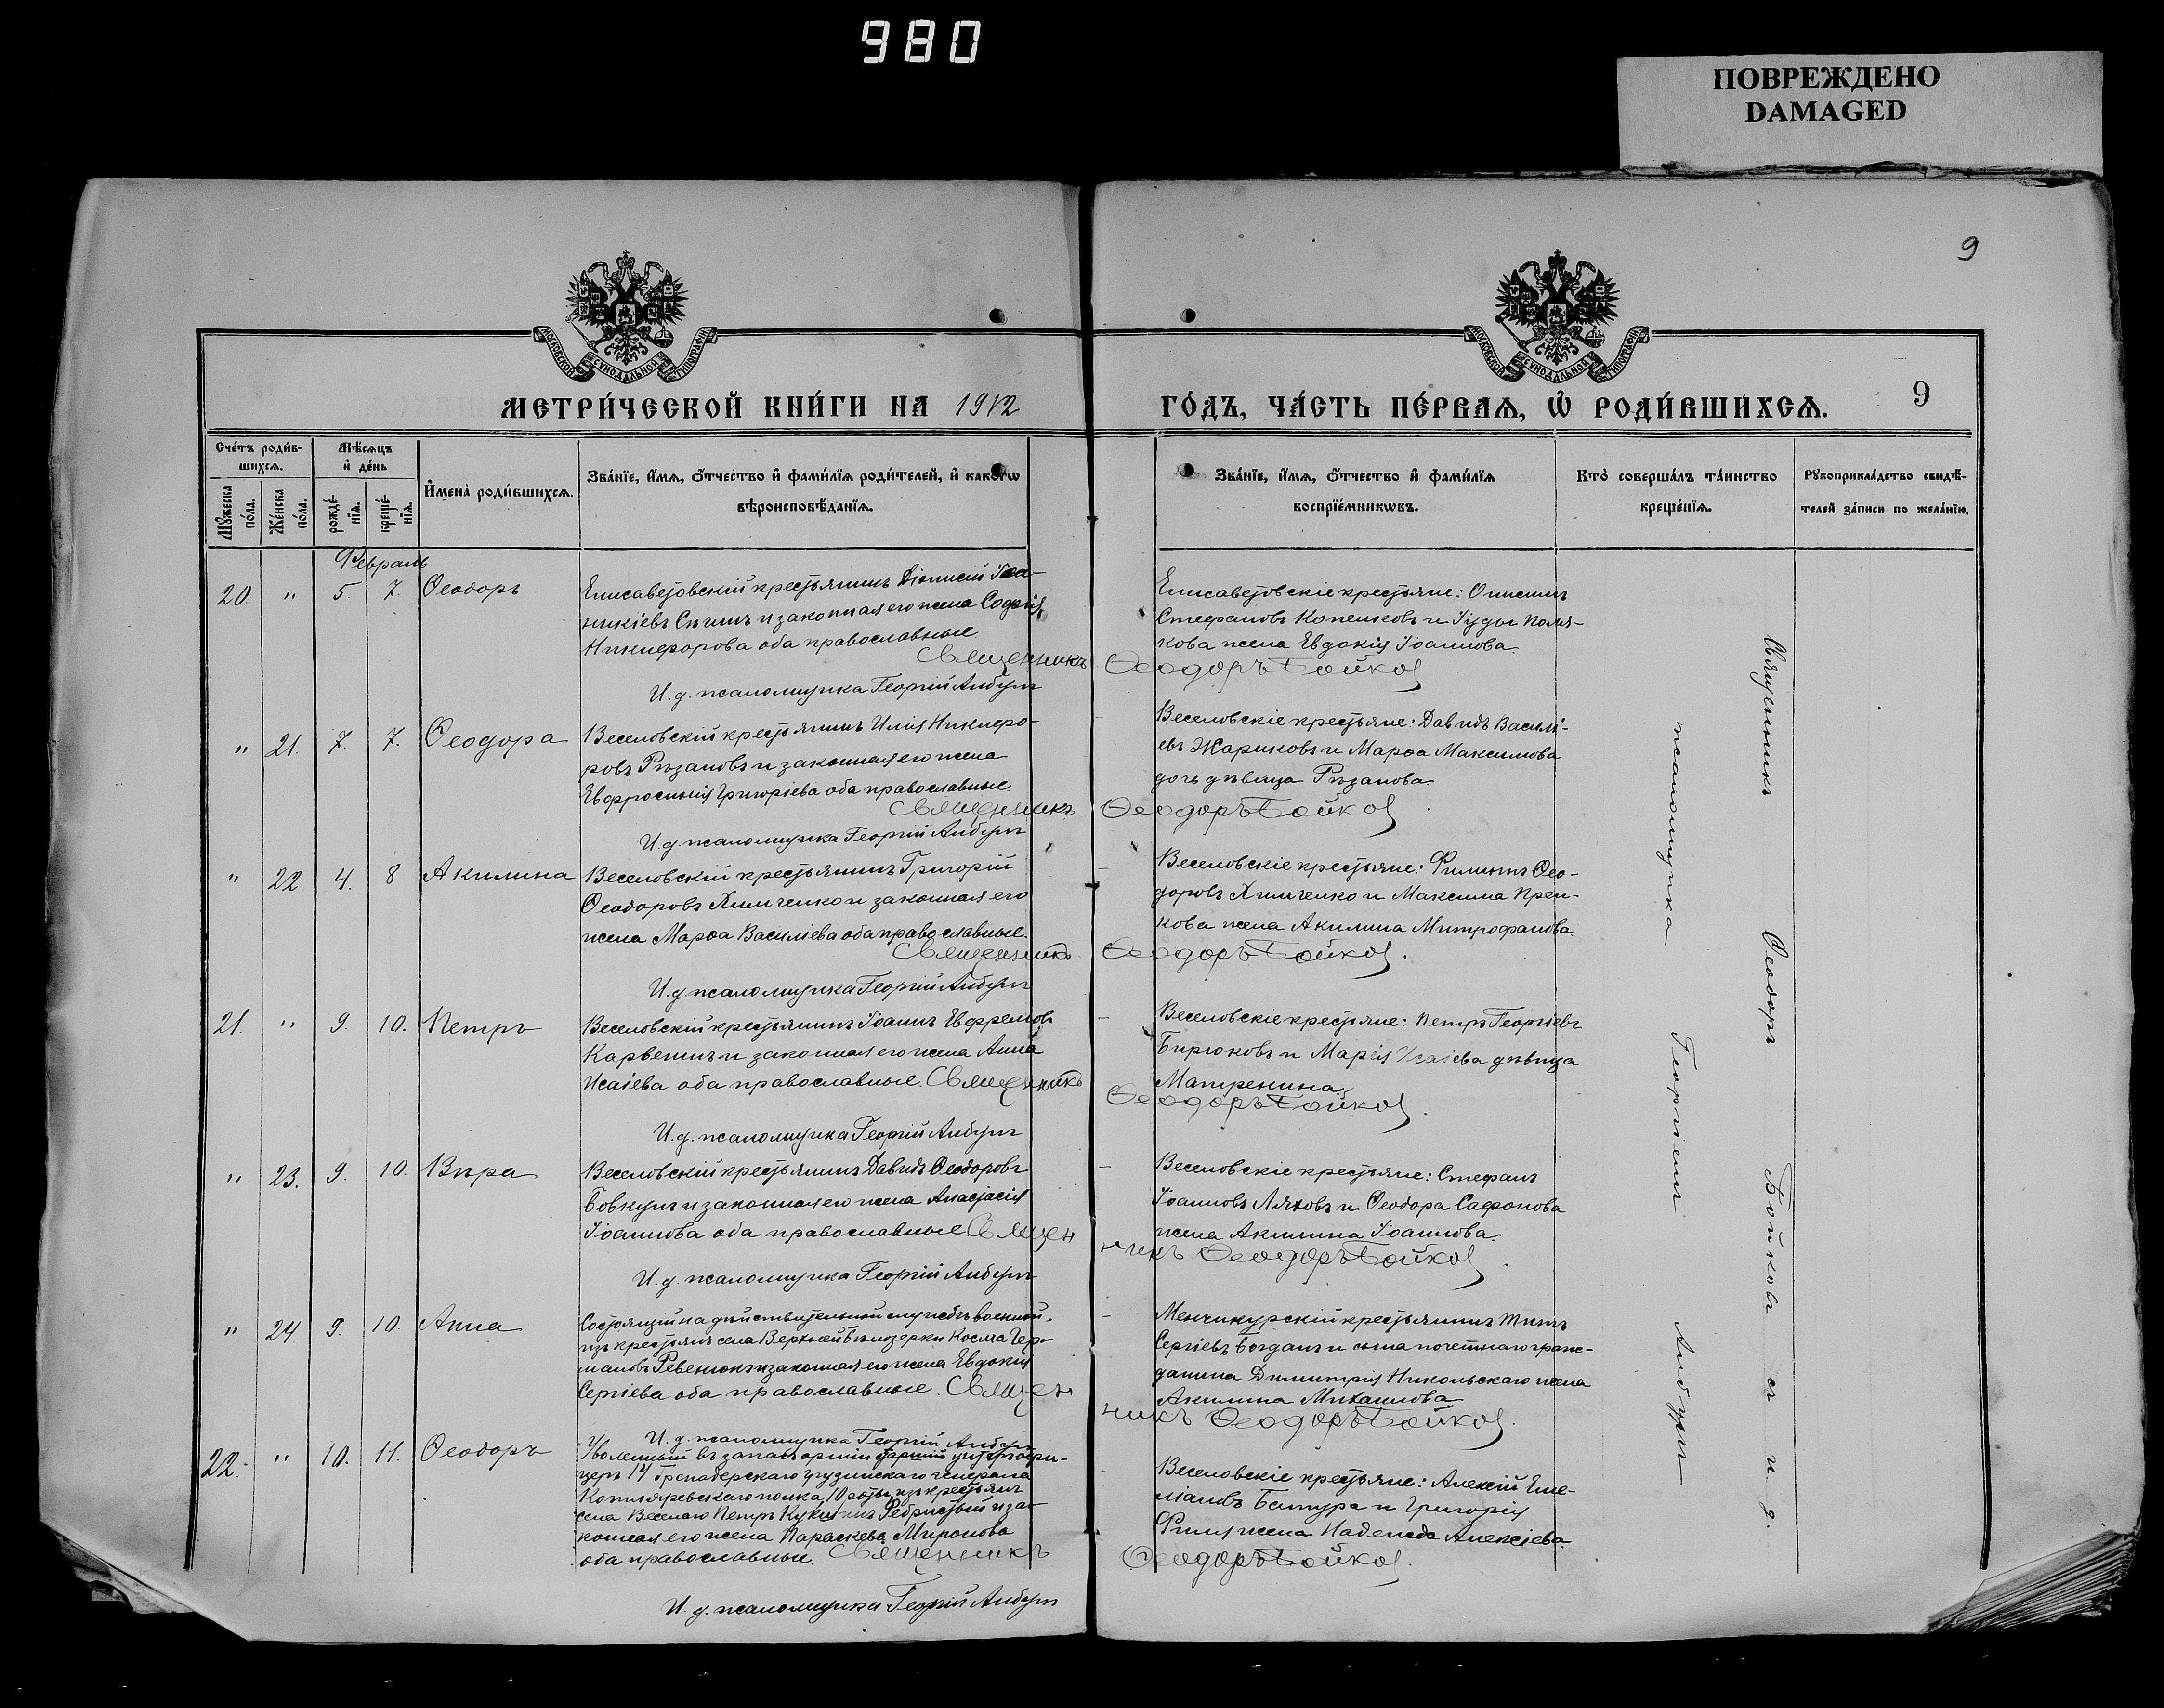 980
ПОВРЕЖДЕНО
DAMAGED
9
МОСКОВСКОЙ СѴНОДАЛЬНОЙ ТИПОГРАФІИ
МОСКОВСКОЙ СѴНОДАЛЬНОЙ ТИПОГРАФІИ
МЕТРИ́ЧЕСКОЙ КНИ́ГИ НА 1912
ГО́ДЪ, ЧА́СТЬ ПЕ́РВАѦ, Ѡ҆ РОДИ́ВШИХСѦ. 9
Сче́тъ роди́в-
шихсѧ.
Мѣ́сѧцъ
и҆ де́нь
Мꙋ́жеска
по́ла.
Же́нска
по́ла.
рожде́-
нїѧ.
креще́-
нїѧ.
И҆мена̀ роди́вшихсѧ.
Зва́нїе, и҆́мѧ, ѻ҆́тчество и҆ фами́лїѧ роди́телей, и҆ како́гѡ
вѣроисповѣ́данїѧ.
Зва́нїе, и҆́мѧ, ѻ҆́тчество и҆ фами́лїѧ
воспрїе́мникѡвъ.
Кто̀ соверша́лъ та́инство
креще́нїѧ.
Рꙋкоприкла́дство свидѣ́-
телей за́писи по жела́нїю.
Февраль
20. " 5. 7. Ѳеодоръ
Елисаветовскій крестьянинъ Діонисій Іоан-
никіевъ и законная его жена Софія
Никифорова оба православные
Священникъ Ѳеодоръ Бойковъ
И. д. псаломщика Георгій Анбуръ
Елисаветовскіе крестьяне: Онисимъ
Стефановъ Копенковъ и Іуды Поля-
кова жена Евдокія Іоаннова.
" 21. 7. 7. Ѳеодора
Веселовскій крестьянинъ Илія Никифо-
ровъ Рѣзановъ и законная его жена
Евфросинія Григоріева оба православные
Священникъ Ѳеодоръ Бойковъ
И. д. псаломщика Георгій Анбуръ
Веселовскіе крестьяне: Давидъ Василі-
евъ Жариковъ и Марѳа Максимова
дочь дѣвица Рѣзанова.
" 22 4. 8 Акилина
Веселовскій крестьянинъ Григорій
Ѳеодоровъ Химченко и законная его
жена Марѳа Василіева оба православные.
Священникъ Ѳеодоръ Бойковъ.
И. д. псаломщика Георгій Анбуръ
Веселовскіе крестьяне: Филиппъ Ѳео-
доровъ Химченко и Максима
кова жена Акилина Митрофанова.
21. " 9. 10. Петръ
Веселовскій крестьянинъ Іоаннъ Евфремовъ
и законная его жена Анна
Исаіева оба православные. Священникъ
Ѳеодоръ Бойковъ.
И. д. псаломщика Георгій Анбуръ
Веселовскіе крестьяне: Петръ Георгіевъ
Бирюковъ и Марія Исаіева дѣвица
Матренина
" 23. 9. 10. Вѣра
Веселовскій крестьянинъ Давидъ Ѳеодоровъ
Бовкунъ и законная его жена Анастасія
Іоаннова оба православные Священ
никъ Ѳеодоръ Бойковъ.
И. д. псаломщика Георгій Анбуръ
Веселовскіе крестьяне: Стефанъ
Іоанновъ Ляховъ и Ѳеодора Сафонова
жена Акилина Іоаннова.
" 24 9. 10. Анна
Состоящій на дѣйствительной службѣ военной,
изъ крестьянъ села Верхней Бѣлозерки Косма Гер-
мановъ Ревенокъ и законная его жена Евдокія
Сергіева оба православные. Священ
никъ Ѳеодоръ Бойковъ.
И. д. псаломщика Георгій Анбуръ
Менчикурскій крестьянинъ Титъ
Сергіевъ Богданъ и сына почетнаго граж-
данина Димитрія Никольскаго жена
Акилина Михаилова
22. " 10. 11. Ѳеодоръ
Уволенный въ запасъ арміи старшій унтеръ офи-
церъ 14 Гренадерскаго грузинскаго генерала
Котляревскаго полка, 10 роты, изъ крестьянъ
села Веселаго Петръ Ребристый и за-
конная его жена Параскева Миронова
оба православные. Священникъ
Ѳеодоръ Бойковъ.
И. д. псаломщика Георгій Анбуръ
Веселовскіе крестьяне: Алексій Еме-
ліановъ Батура и Григорія
жена Надежда Алексіева
Священникъ Ѳеодоръ Бойковъ съ и. д.
псаломщика Георгіемъ Анбуръ